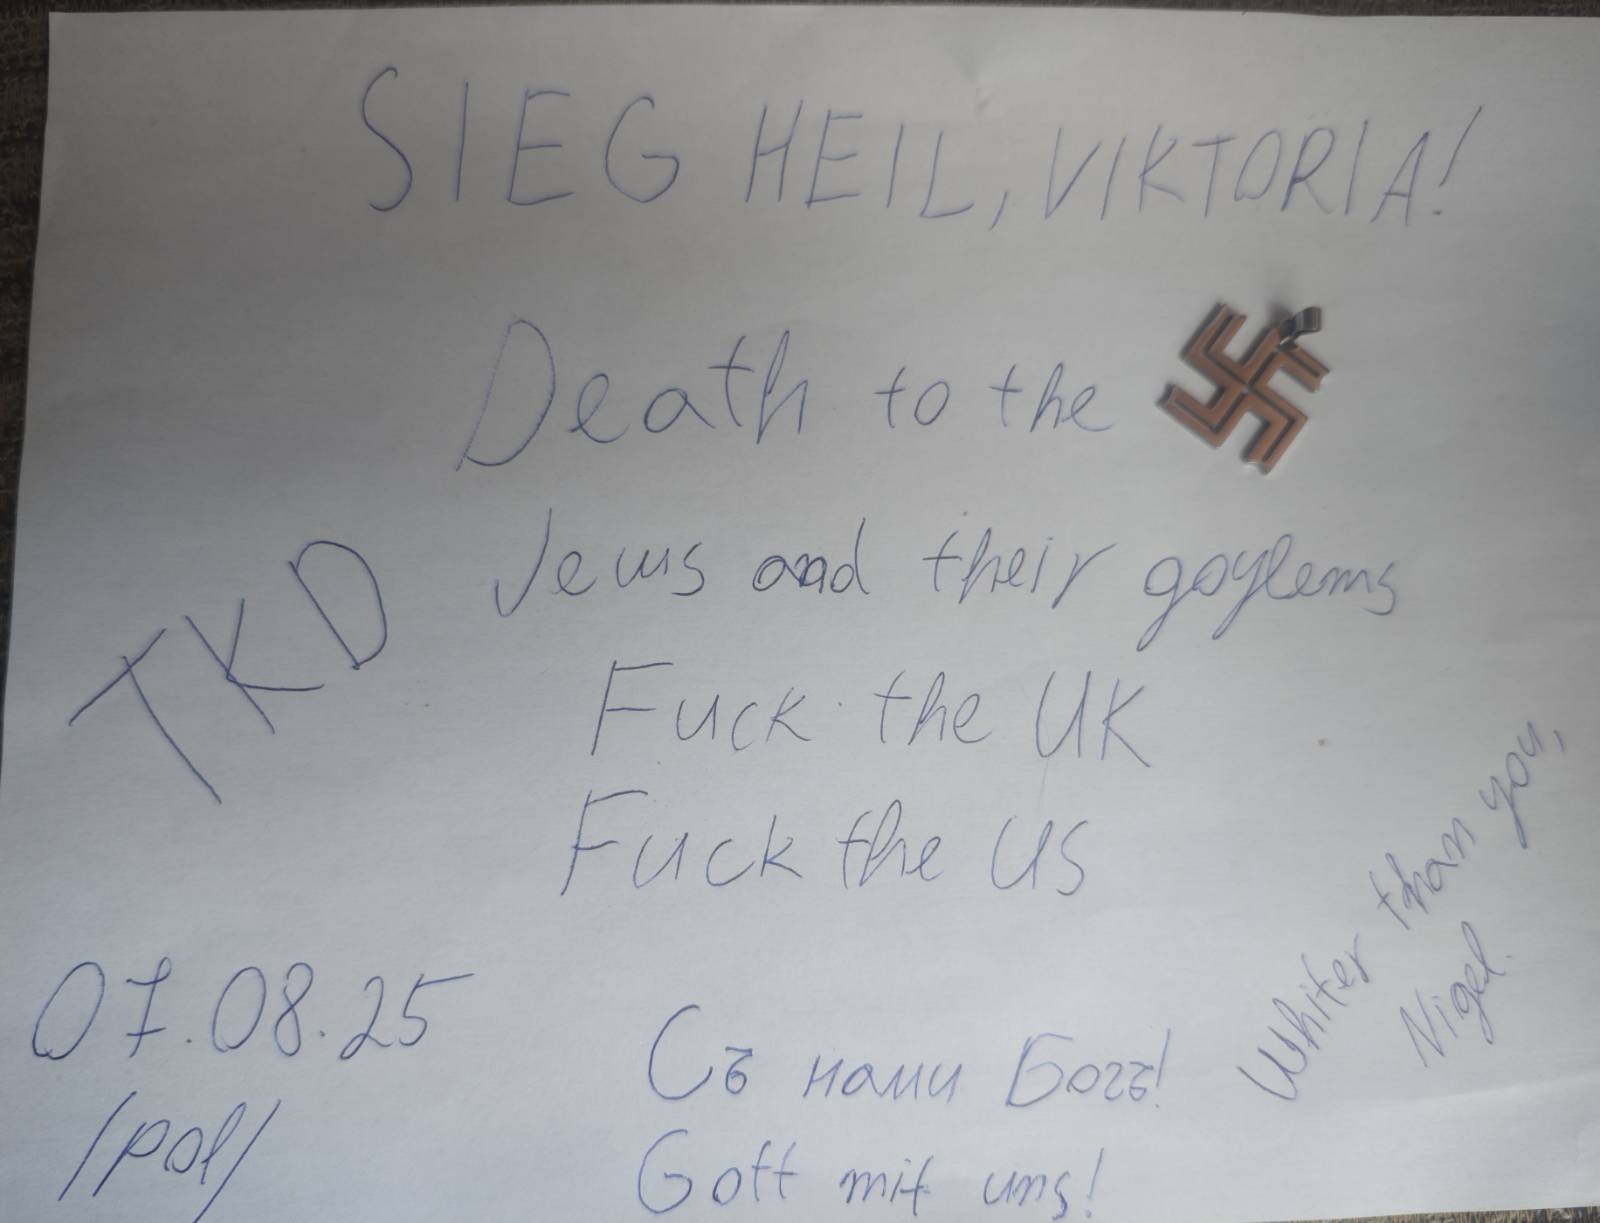 SIEG HEIL, VIKTORIA!
Death to the
Jews and their goylems
TKD
Fuck the UK
Fuck the US
Whiter than you,
Nigel.
07.08.25
/pol/
Съ нами Богъ!
Gott mit uns!